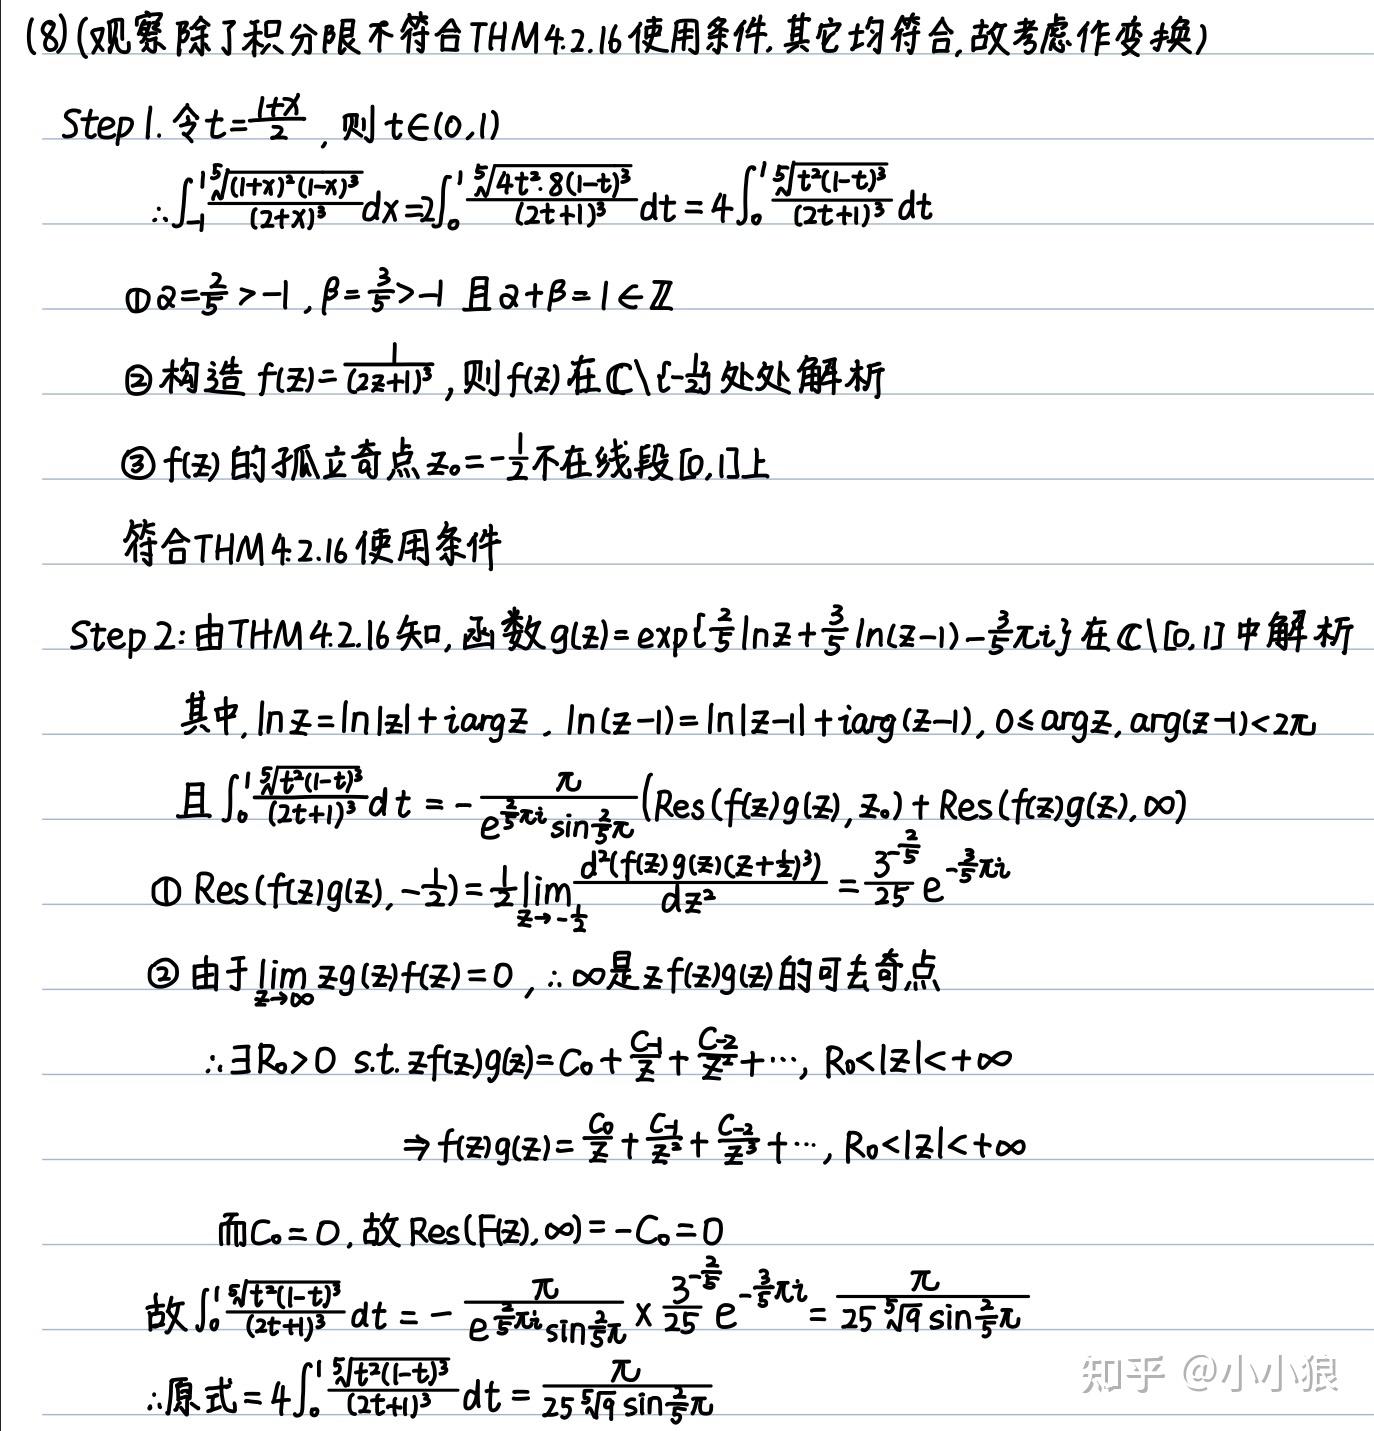 (8)(观察除了积分限不符合THM4.2.16使用条件,其它均符合,故考虑作变换)
Step 1. 令t=\frac{1+x}{2}, 则t∈(0,1)
∴∫_{-1}^{1}\frac{\sqrt[5]{(1+x)^2(1-x)^3}}{(2+x)^3}dx=2∫_0^1\frac{\sqrt[5]{4t^2·8(1-t)^3}}{(2t+1)^3}dt=4∫_0^1\frac{\sqrt[5]{t^2(1-t)^3}}{(2t+1)^3}dt
①α=\frac{2}{5}>-1, β=\frac{3}{5}>-1 且α+β=1∈ℤ
②构造 f(z)=\frac{1}{(2z+1)^3}, 则f(z)在ℂ\{-\frac{1}{2}}处处解析
③f(z)的孤立奇点z₀=-\frac{1}{2}不在线段[0,1]上
符合THM4.2.16使用条件
Step 2:由THM4.2.16知,函数g(z)=exp{\frac{2}{5}lnz+\frac{3}{5}ln(z-1)-\frac{3}{5}πi}在ℂ\[0,1]中解析
其中,lnz=ln|z|+iargz, ln(z-1)=ln|z-1|+iarg(z-1), 0≤argz,arg(z-1)<2π
且∫_0^1\frac{\sqrt[5]{t^2(1-t)^3}}{(2t+1)^3}dt=-\frac{π}{e^{\frac{2}{5}πi}sin\frac{2}{5}π}(Res(f(z)g(z),z₀)+Res(f(z)g(z),∞)
①Res(f(z)g(z),-\frac{1}{2})=\frac{1}{2}\lim_{z→-\frac{1}{2}}\frac{d^2(f(z)g(z)(z+\frac{1}{2})^3)}{dz^2}=\frac{3^{-\frac{2}{5}}}{25}e^{-\frac{3}{5}πi}
②由于\lim_{z→∞}zg(z)f(z)=0, ∴∞是zf(z)g(z)的可去奇点
∴∃R₀>0 s.t. zf(z)g(z)=C₀+\frac{C_{-1}}{z}+\frac{C_{-2}}{z^2}+⋯, R₀<|z|<+∞
⇒f(z)g(z)=\frac{C₀}{z}+\frac{C_{-1}}{z^2}+\frac{C_{-2}}{z^3}+⋯, R₀<|z|<+∞
而C₀=0,故Res(F(z),∞)=-C₀=0
故∫_0^1\frac{\sqrt[5]{t^2(1-t)^3}}{(2t+1)^3}dt=-\frac{π}{e^{\frac{2}{5}πi}sin\frac{2}{5}π}×\frac{3^{-\frac{2}{5}}}{25}e^{-\frac{3}{5}πi}=\frac{π}{25\sqrt[5]{9}sin\frac{2}{5}π}
∴原式=4∫_0^1\frac{\sqrt[5]{t^2(1-t)^3}}{(2t+1)^3}dt=\frac{π}{25\sqrt[5]{9}sin\frac{2}{5}π}
知乎 @小小狼